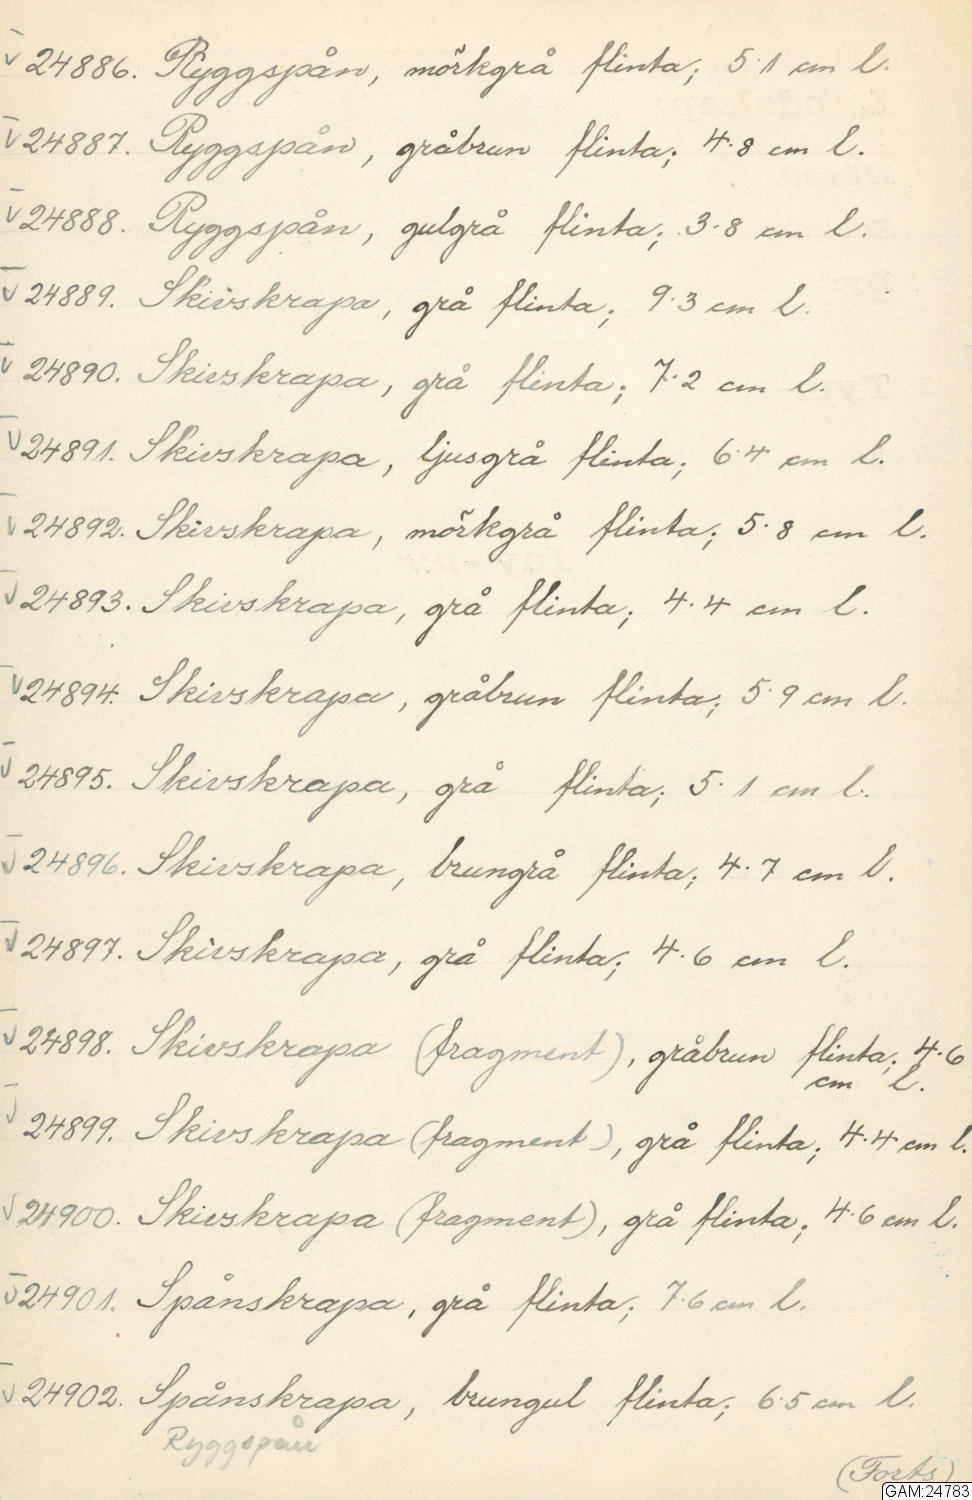 V 24886. Ryggspån, mörkgrå flinta; 5.1 cm l.
V 24887. Ryggspån, gråbrun flinta; 4.8 cm l.
V 24888. Ryggspån, gulgrå flinta; 3.8 cm l.
V 24889. Skivskrapa, grå flinta; 9.3 cm l.
V 24890. Skivskrapa, grå flinta; 7.2 cm l.
V 24891. Skivskrapa, ljusgrå flinta; 6.4 cm l.
V 24892. Skivskrapa, mörkgrå flinta; 5.8 cm l.
V 24893. Skivskrapa, grå flinta; 4.4 cm l.
V 24894. Skivskrapa, gråbrun flinta; 5.9 cm l.
V 24895. Skivskrapa, grå flinta; 5.1 cm l.
V 24896. Skivskrapa, brungrå flinta; 4.7 cm l.
V 24897. Skivskrapa, grå flinta; 4.6 cm l.
V 24898. Skivskrapa (fragment), gråbrun flinta; 4.6
cm l.
V 24899. Skivskrapa (fragment), grå flinta; 4.4 cm l.
V 24900. Skivskrapa (fragment), grå flinta; 4.6 cm l.
V 24901. Spånskrapa, grå flinta; 7.6 cm l.
V 24902. Spånskrapa, brungul flinta; 6.5 cm l.
Ryggspån
(Forts)
GAM:24783